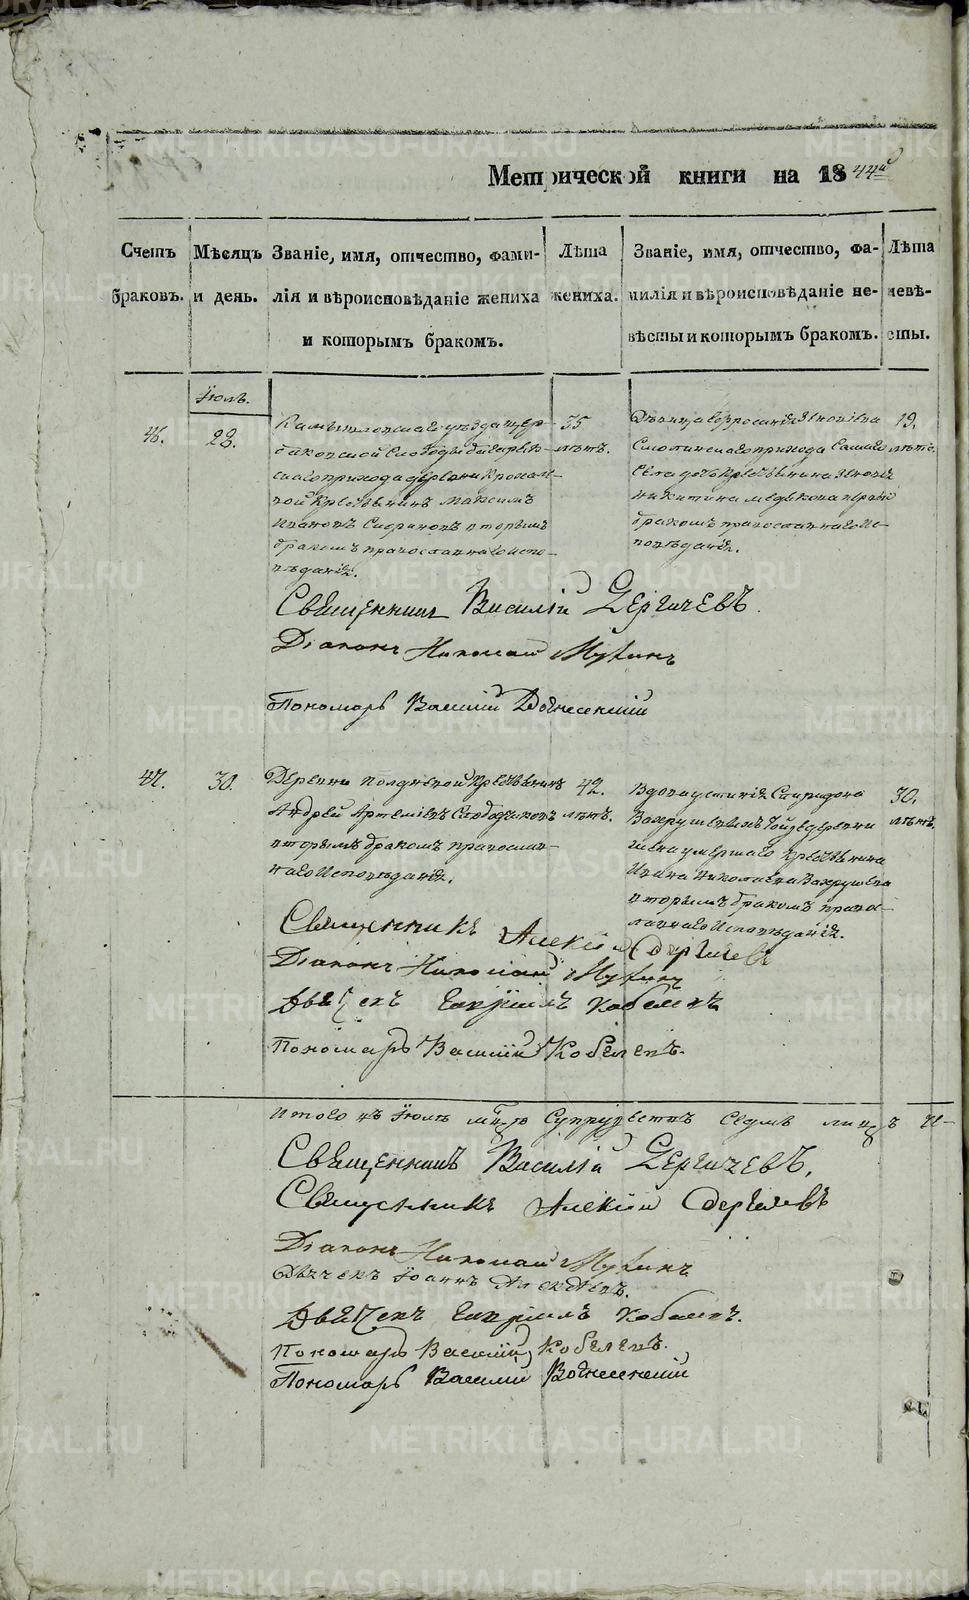 Метрической книги на 1844й
Счетъ браковъ.
Мѣсяцъ и день.
Званіе, имя, отчество, фами-
лія и вѣроисповѣданіе жениха
и которымъ бракомъ.
Лѣта
жениха.
Званіе, имя, отчество, фа-
милія и вѣроисповѣданіе не-
вѣсты и которымъ бракомъ.
Лѣта
невѣ-
сты.
Іюль.
46.
28.
Камышловскаго уѣзда
слободы
скагоприхода деревни
крестьянинъ Максимъ
Ивановъ вторымъ
бракомъ православнаго испо-
вѣданія.
35
лѣтъ.
Дѣвица
прихода самаго
села дочь крестьянина
Никитина первымъ
бракомъ православнаго ис-
повѣданія.
19.
лѣтъ.
Священникъ Василій Дергачевъ.
Діаконъ Николай Мухинъ
Пономарь Василій Вознесенскій
47.
30.
Деревни Полдневой крестьянинъ
Андрей Артеміевъ Слободчиковъ
вторымъ бракомъ православ-
наго исповѣданія.
42.
лѣтъ.
Вдова Спиридона
Вахрушевыхъ тойже деревни
жена умершаго крестьянина
Ивана Николаева Вахрушева
вторымъ бракомъ право-
славнаго исповѣданія.
30.
лѣтъ.
Священникъ Алексій Дергачевъ
Діаконъ Николай Мухинъ
Дьячекъ Гавріилъ Кобелевъ
Пономарь Василій Кобелевъ.
Итого въ Іюлѣ мцѣ супружествъ седмь лицъ
Священникъ Василій Дергачевъ.
Священникъ Алексій Дергачевъ
Діаконъ Николай Мухинъ
Дьячекъ Іоаннъ
Дьячекъ Гавріилъ Кобелевъ.
Пономарь Василій Кобелевъ.
Пономарь Василій Вознесенскій
METRIKI.GASO-URAL.RU